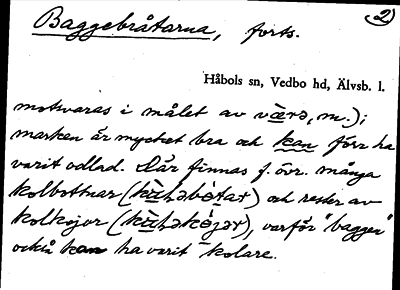 Baggebråtarna, forts. 2)
Håbols sn, Vedbo hd, Älvsb. l.
motsvaras i målet av væra, m.);
marken är mycket bra och kan förr ha
varit odlad. Där finnas f. övr. många
kolbottnar (kὰləbòtar) och rester av
kolkojor (kὰləkójər), varför "baggen"
också kan ha varit kolare.